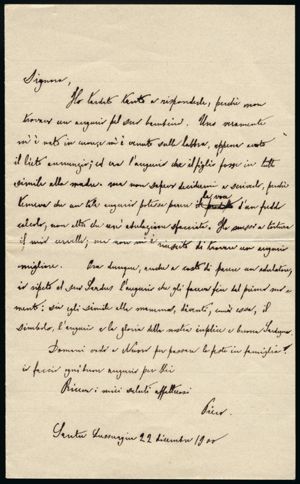 Signora,
Ho tardato tanto a risponderle, perchè non
trovavo un augurio pel suo bambino. Uno veramente
m'è nato in cuore m'è venuto sulle labbra, appena avuto
il lieto annunzio; ed era l'augurio che il figlio fosse in tutto
simile alla madre. ma non sapevo decidermi a scriverlo, perchè
temevo che un tale augurio potesse parere d'un freddo
calcolo, non altro che un'adulazione sfacciata. Ho messo a tortura
il mio cervello, ma non mi è riuscito di trovare un augurio
migliore. Ora dunque, anche a costo di parere un adulatore,
io ripeto al suo l'augurio che gli facevo fin dal primo mo-
mento: sia egli simile alla mamma, diventi, com'essa, il
simbolo, l'augurio e la gloria della nostra infelice e buona Sardegna.
Domani vado a Nuoro per passare le feste in famiglia.
io faccio ogni buon augurio per Lei
Riceva i miei saluti affettuosi
Santu Lussurgiu 22 dicembre 1900